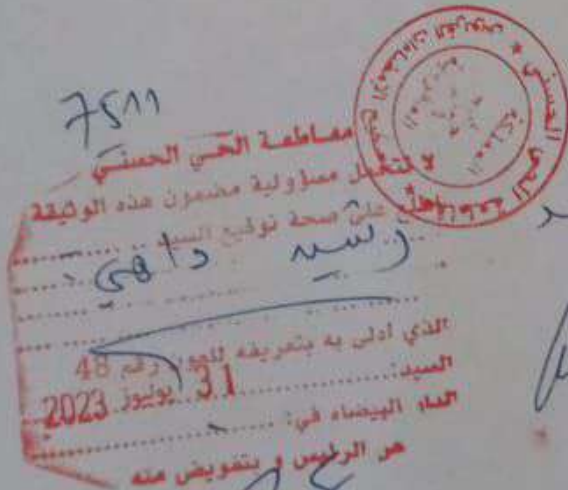 7511
مقاطعة الحي الحسني
لا نتحمل مسؤولية مضمون هذه الوثيقة
على صحة توقيع السيد
رشيد داهي
الذي أدلى به بتعريفه للهوية رقم 48
السيد:
31 يوليوز 2023
الدار البيضاء في:
عن الرئيس و بتفويض منه